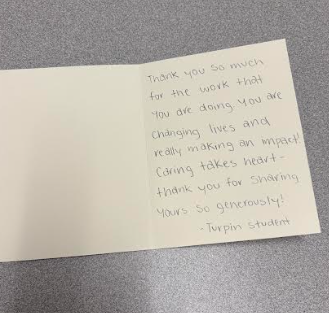 Thank you so much
for the work that
you are doing you are
changing lives and
really making an impact!
Caring takes heart-
thank you for sharing
yours so generously!
-Turpin student